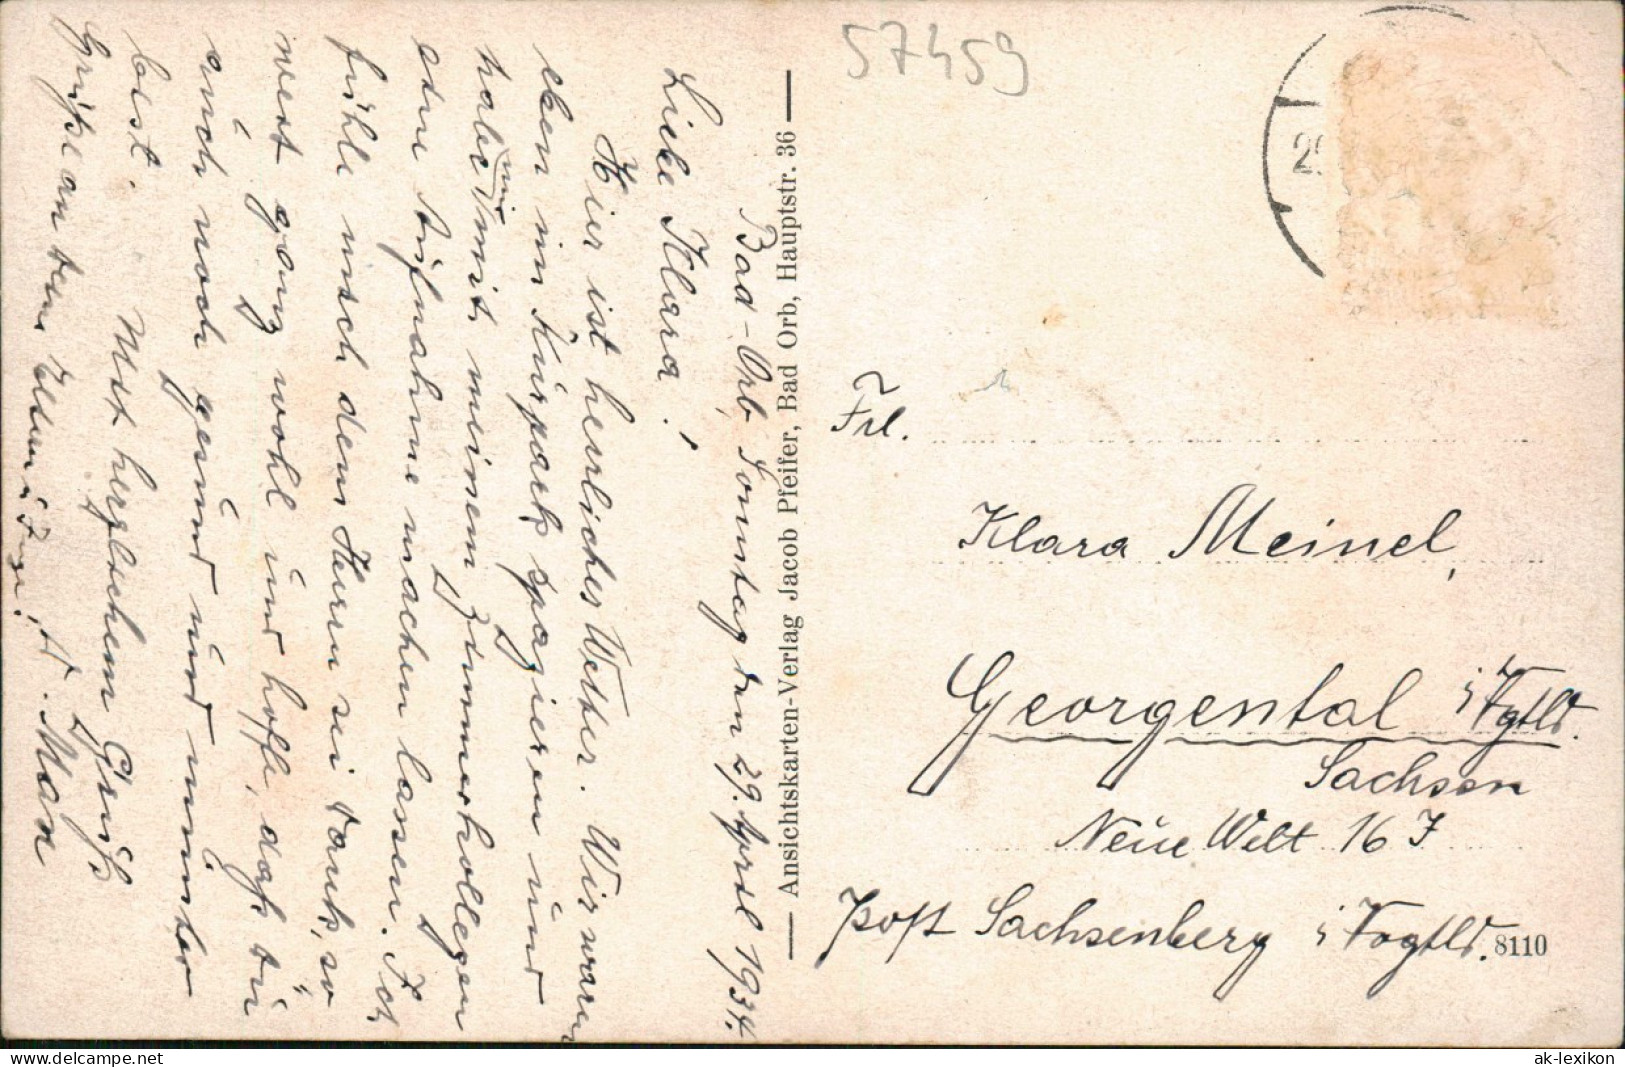 57459
2
Bad-Orb, Sonntag den 29. April 1934.
Liebe Klara!
Hier ist herrliches Wetter. Wir waren
eben im Kurpark spazieren und
habe mir mit meinem Zimmerkollegen
eine Aufnahme machen lassen. Ich
fühle mich dem Herrn sei Dank, so
weit ganz wohl und hoffe, daß Du
auch noch gesund und munter
bist.
Mit herzlichem Gruß
Grüße an dein Eltern u. A. Max
— Ansichtskarten-Verlag Jacob Pfeifer, Bad Orb, Hauptstr. 36 —
Frl.
Klara Meinel,
Georgental i/Vgtld.
Sachsen
Neue Welt 16 J
Post Sachsenberg i Vogtld.
8110
ak-lexikon